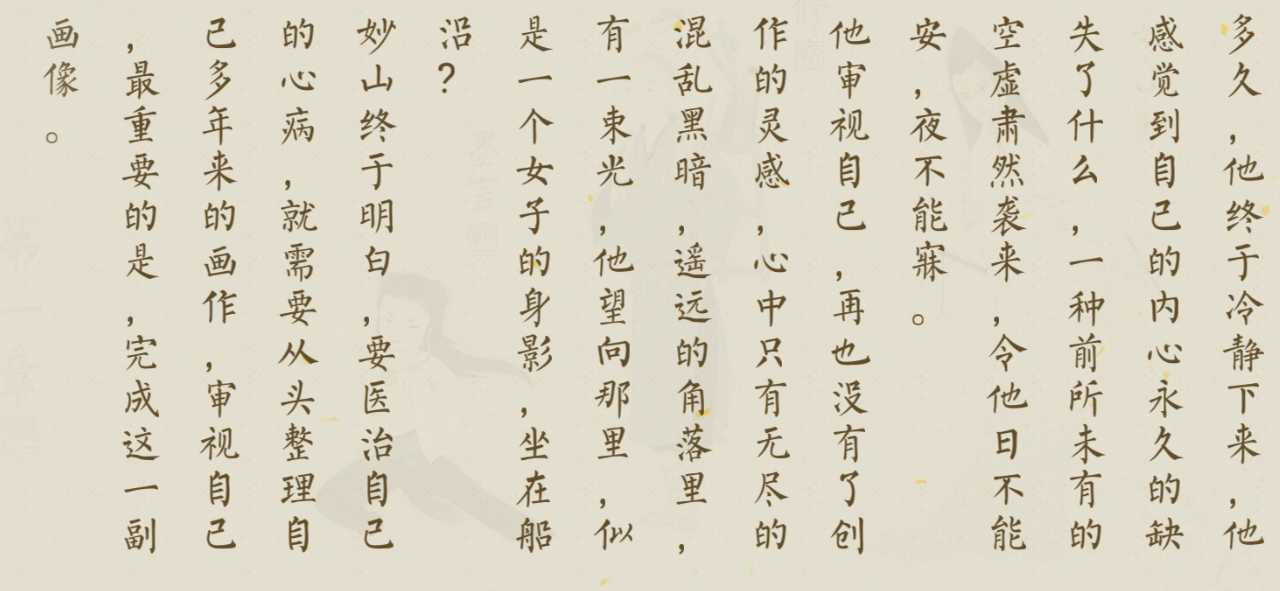 多久，他终于冷静下来，他
感觉到自己的内心永久的缺
失了什么，一种前所未有的
空虚肃然袭来，令他日不能
安，夜不能寐。
他审视自己，再也没有了创
作的灵感，心中只有无尽的
混乱黑暗，遥远的角落里，
有一束光，他望向那里，似
是一个女子的身影，坐在船
沿？
妙山终于明白，要医治自己
的心病，就需要从头整理自
己多年来的画作，审视自己
，最重要的是，完成这一副
画像。